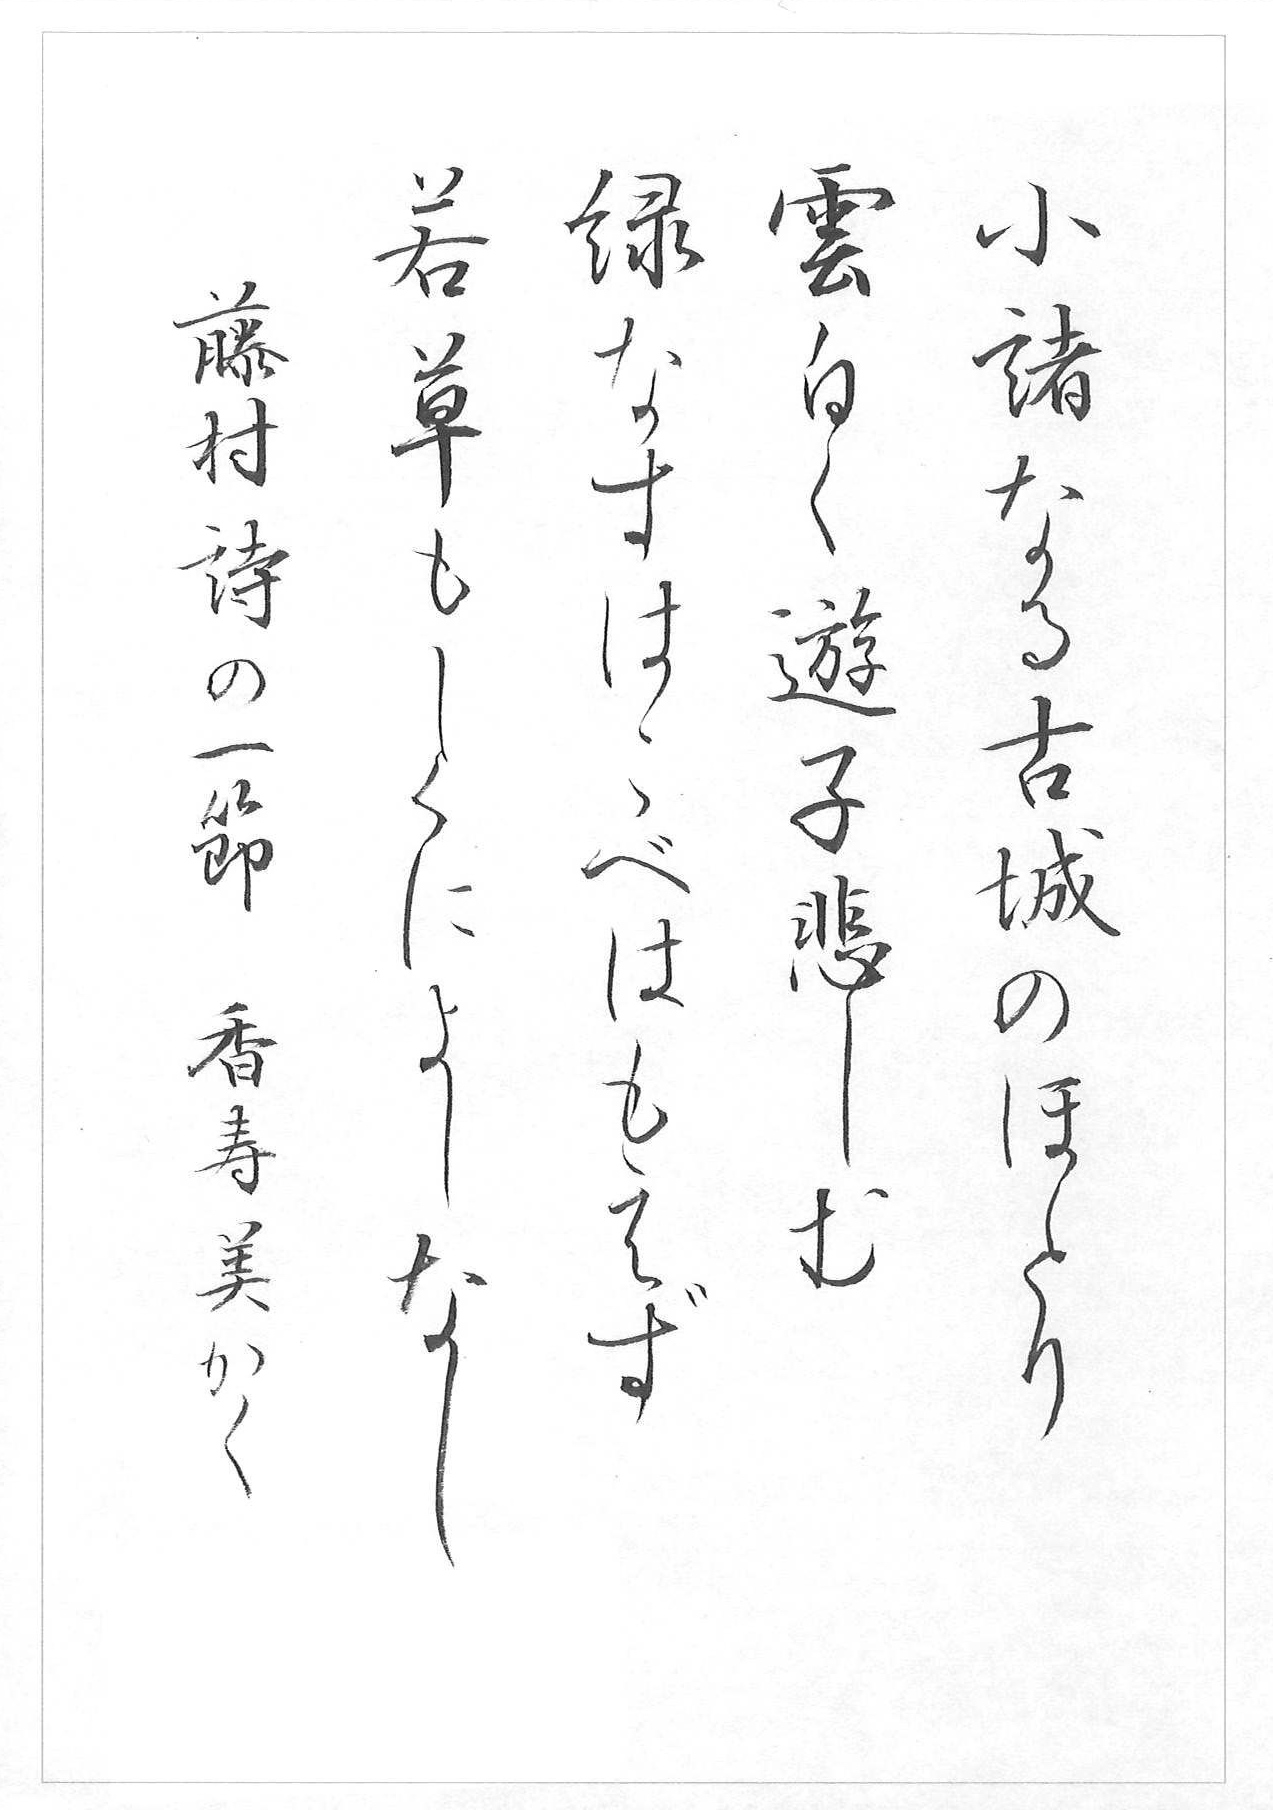 小諸なる古城のほとり
雲白く遊子悲しむ
緑なすはこべはもえず
若草もしくによしなし
藤村詩の一節　香寿美かく